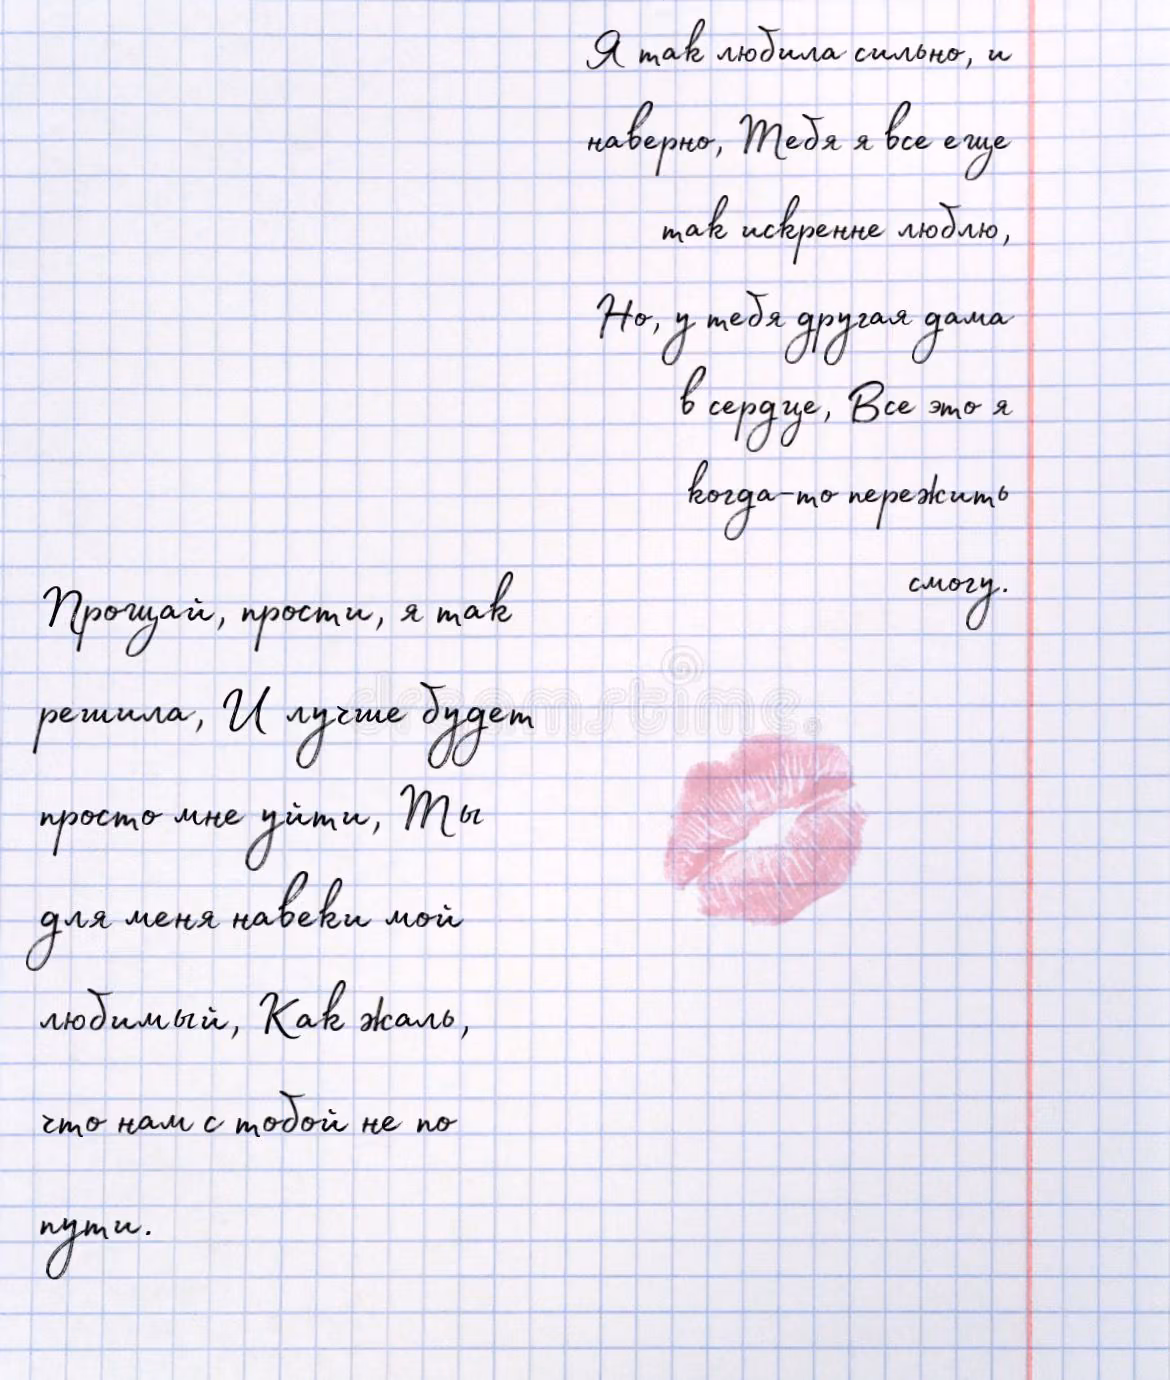 Я так любила сильно, и
наверно, Тебя я все еще
так искренне люблю,
Но, у тебя другая дама
в сердце, Все это я
когда-то пережить
смогу.
Прощай, прости, я так
решила, И лучше будет
просто мне уйти, Ты
для меня навеки мой
любимый, Как жаль,
что нам с тобой не по
пути.
dreamstime.